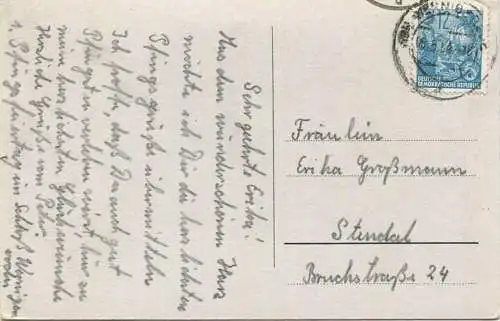 Sehr geehrte Erika!
Aus dem wunderschönen Harz
möchte ich Dir die herzlichsten
Pfingstgrüße übermitteln
Ich hoffe, daß Du auch gut
Pfingsten verleben wirst, hierzu
meine herzlichsten Glückwünsche
Herzliche Grüße von Peter
1. Pfingstfeiertag im Schloß
DEUTSCHE
DEMOKRATISCHE REPUBLIK
Fräulein
Erika Großmann
Stendal
Bruchstraße 24